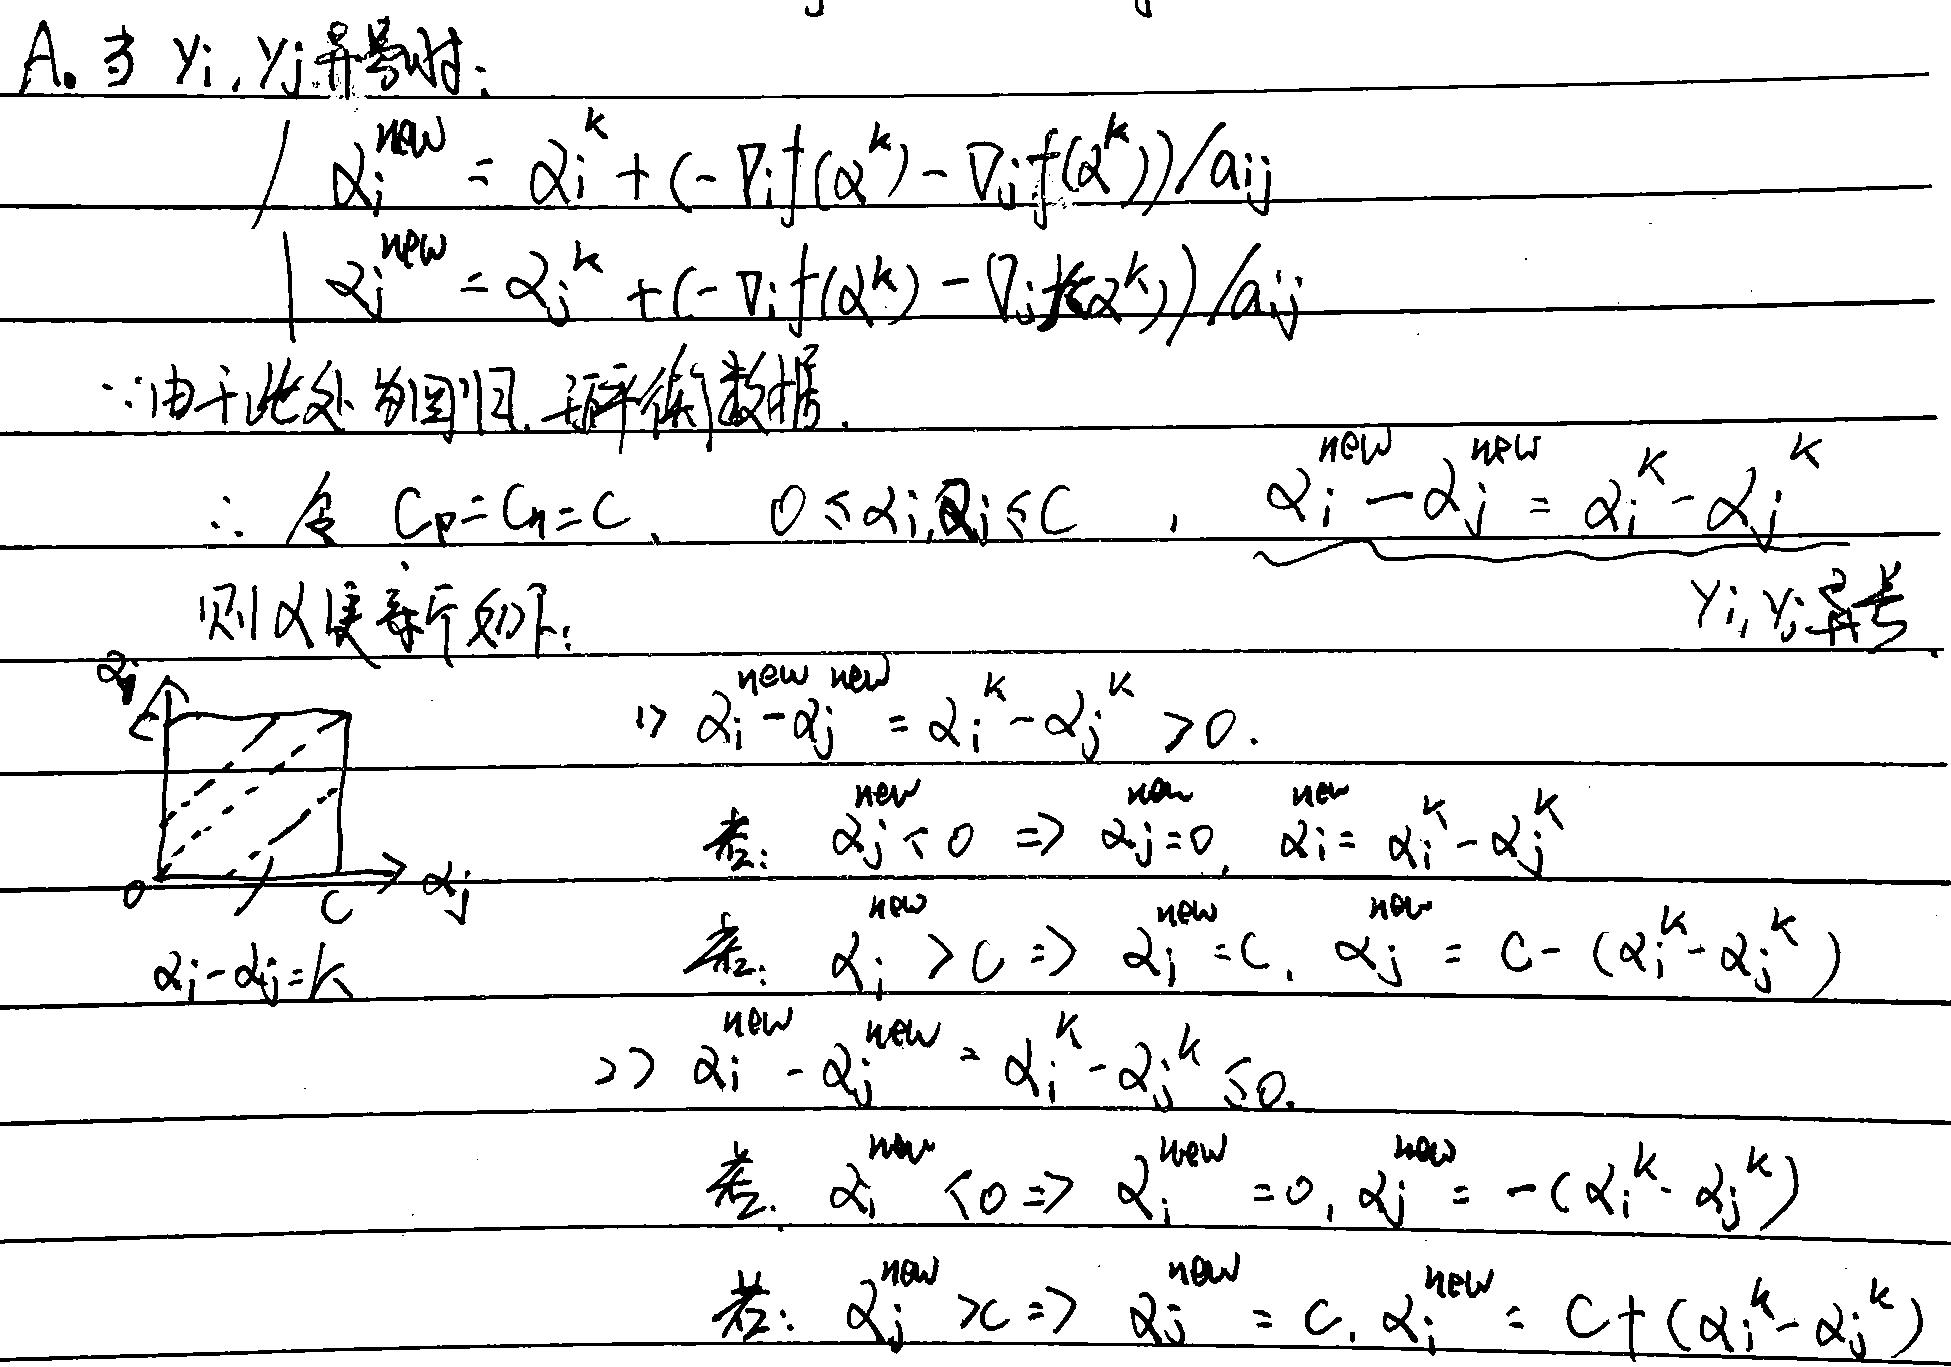 A. 当 yi, yj 异号时:
αi^new = αi^k + (-∇if(α^k) - ∇jf(α^k))/aij
αj^new = αj^k + (-∇if(α^k) - ∇jf(α^k))/aij
∵由于此处为回归, 平衡数据.
∴ 令 Cp=Cn=C, 0≤αi,αj≤C , αi^new - αj^new = αi^k - αj^k
则α更新如下: yi, yj异号.
1> αi^new - αj^new = αi^k - αj^k >0.
若: αj^new <0 => αj^new=0, αi^new= αi^k - αj^k
若: αi^new >C => αi^new=C, αj^new = C-(αi^k-αj^k)
0 C αj
αi-αj=k
2> αi^new - αj^new = αi^k - αj^k ≤0.
若. αi^new <0 => αi^new =0, αj^new = -(αi^k- αj^k)
若: αj^new >C => αj^new = C, αi^new = C+(αi^k-αj^k)